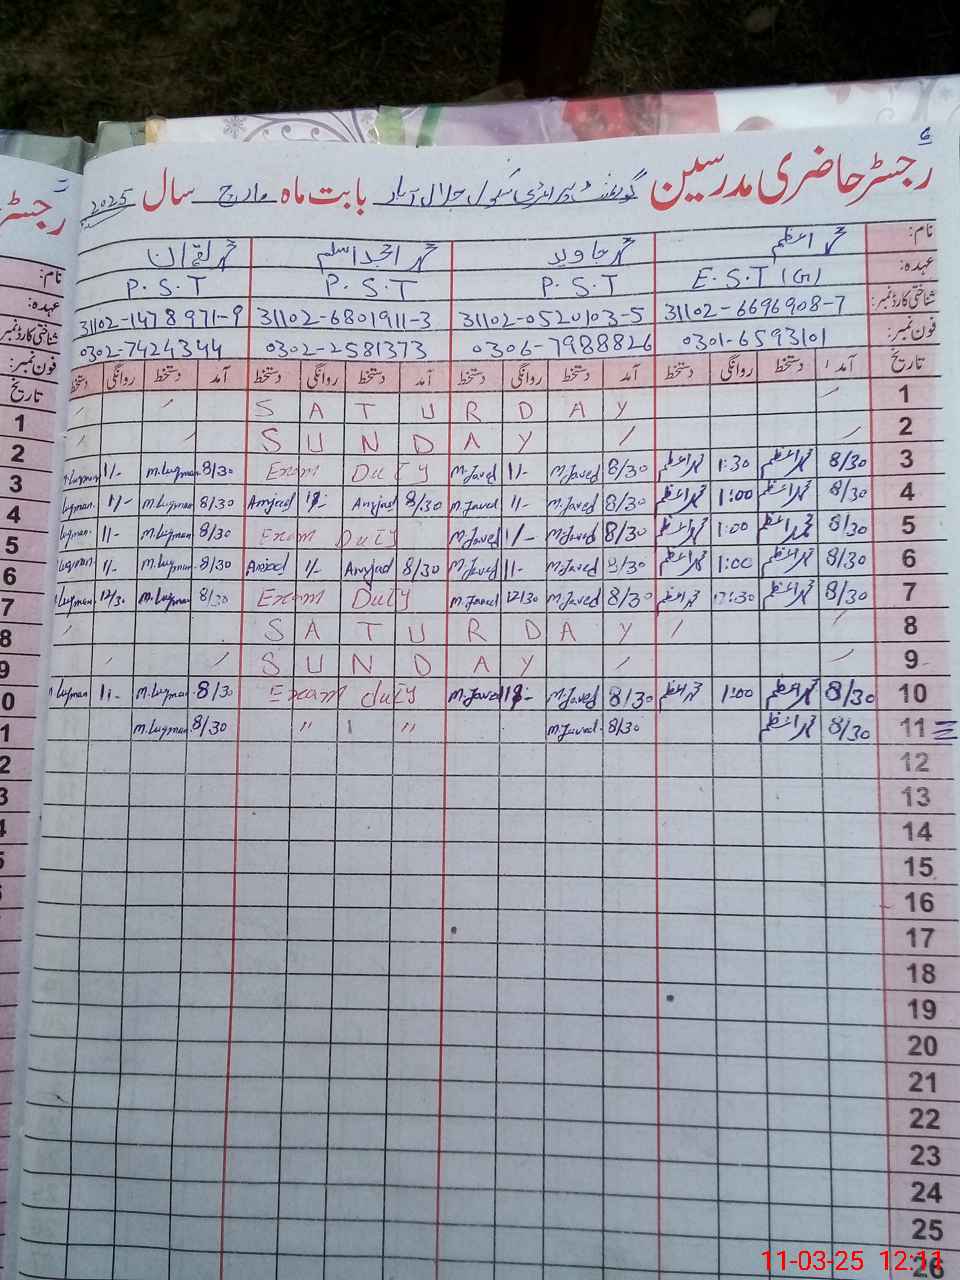 6
رجسٹر حاضری مدرسین گورنمنٹ پرائمری سکول جلال آباد بابت ماہ مارچ سال 2025
نام: محمد اعظم محمد جاوید محمد امجد اسلم محمد لقمان
عہدہ: E.S.T (G) P.S.T P.S.T P.S.T
شناختی کارڈ نمبر: 31102-6696908-7 31102-0520103-5 31102-6801911-3 31102-1478971-9
فون نمبر: 0301-6593101 0306-7988826 0302-2581373 0302-7424344
تاریخ آمد دستخط روانگی دستخط آمد دستخط روانگی دستخط آمد دستخط روانگی دستخط آمد دستخط روانگی دستخط
1 SATURDAY
2 SUNDAY
3 8/30 محمد اعظم 1:30 محمد اعظم 8/30 M.Javed 1/- M.Javed Exam Duty 8/30 M.Luqman 1/- M.Luqman
4 8/30 محمد اعظم 1:00 محمد اعظم 8/30 M.Javed 1/- M.Javed 8/30 Amjad 1/- Amjad 8/30 M.Luqman 1/- Luqman
5 8/30 محمد اعظم 1:00 محمد اعظم 8/30 M.Javed 1/- M.Javed Exam Duty 8/30 M.Luqman 1/- Luqman
6 8/30 محمد اعظم 1:00 محمد اعظم 8/30 M.Javed 1/- M.Javed 8/30 Amjad 1/- Amjad 8/30 M.Luqman 1/- Luqman
7 8/30 محمد اعظم 12:30 محمد اعظم 8/30 M.Javed 12/30 M.Javed Exam Duty 8/30 M.Luqman 12/30 Luqman
8 SATURDAY
9 SUNDAY
10 8/30 محمد اعظم 1:00 محمد اعظم 8/30 M.Javed 1/- M.Javed Exam duty 8/30 M.Luqman 1:- Luqman
11 8/30 محمد اعظم 8/30 M.Javed " 1 " 8/30 M.Luqman
12
13
14
15
16
17
18
19
20
21
22
23
24
25
26
11-03-25 12:11